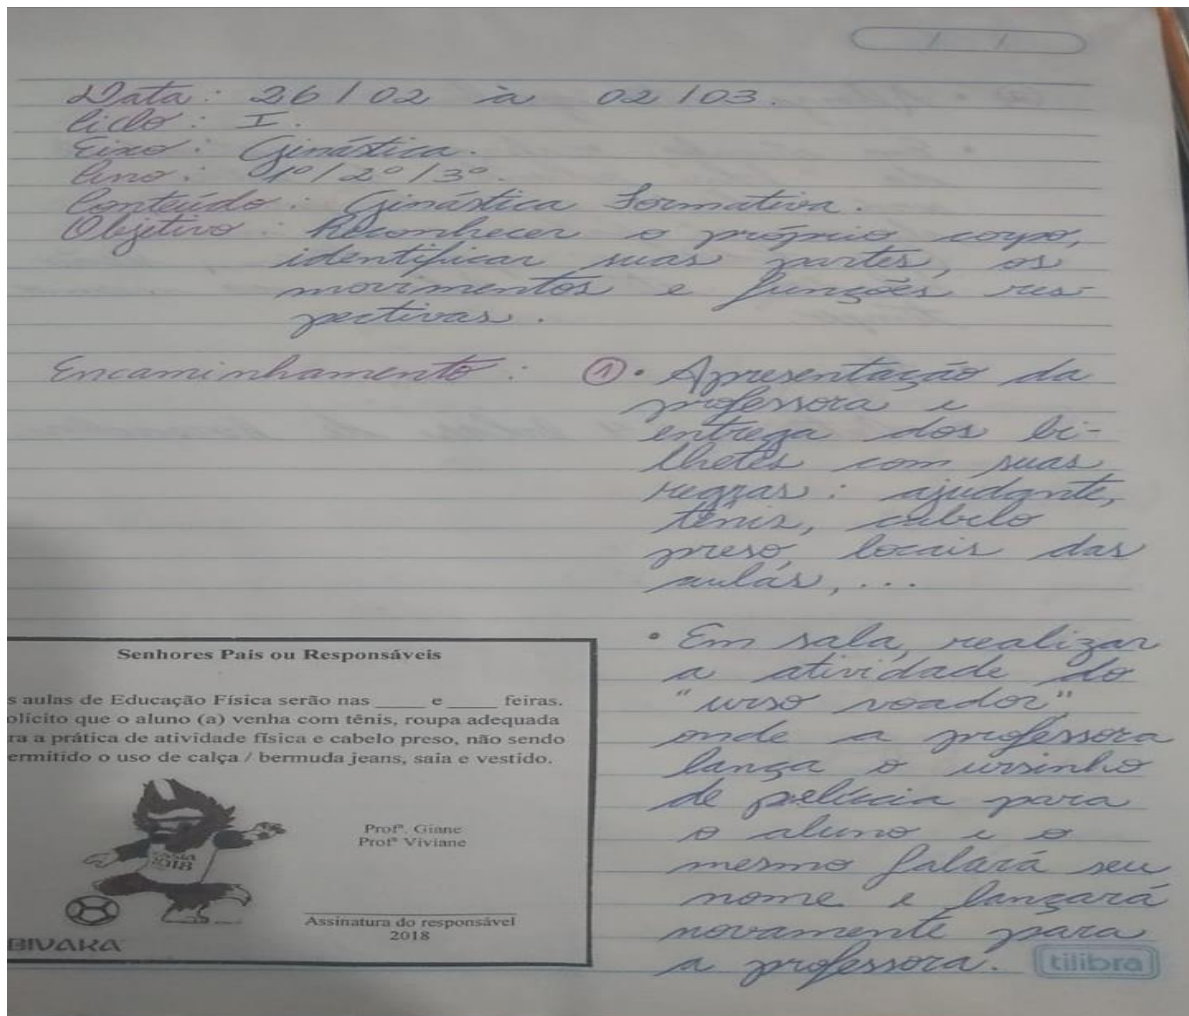 Data: 26/02 à 02/03.
Ciclo: I.
Eixo: Ginástica.
Ano: 1º/2º/3º.
Conteúdo: Ginástica Formativa.
Objetivo: Reconhecer o próprio corpo,
identificar suas partes, os
movimentos e funções res-
pectivas.
Encaminhamento: 1 • Apresentação da
professora e
entrega dos bi-
lhetes com suas
regras: ajudante,
tênis, cabelo
preso, locais das
aulas, ...
• Em sala, realizar
a atividade do
"urso voador",
onde a professora
lança o ursinho
de pelúcia para
o aluno e o
mesmo falará seu
nome e lançará
novamente para
a professora.
tilibra
Senhores Pais ou Responsáveis
s aulas de Educação Física serão nas _____ e _____ feiras.
olicito que o aluno (a) venha com tênis, roupa adequada
ra a prática de atividade física e cabelo preso, não sendo
ermitido o uso de calça / bermuda jeans, saia e vestido.
Profª. Giane
Profª Viviane
2018
Assinatura do responsável
2018
BIVAKA